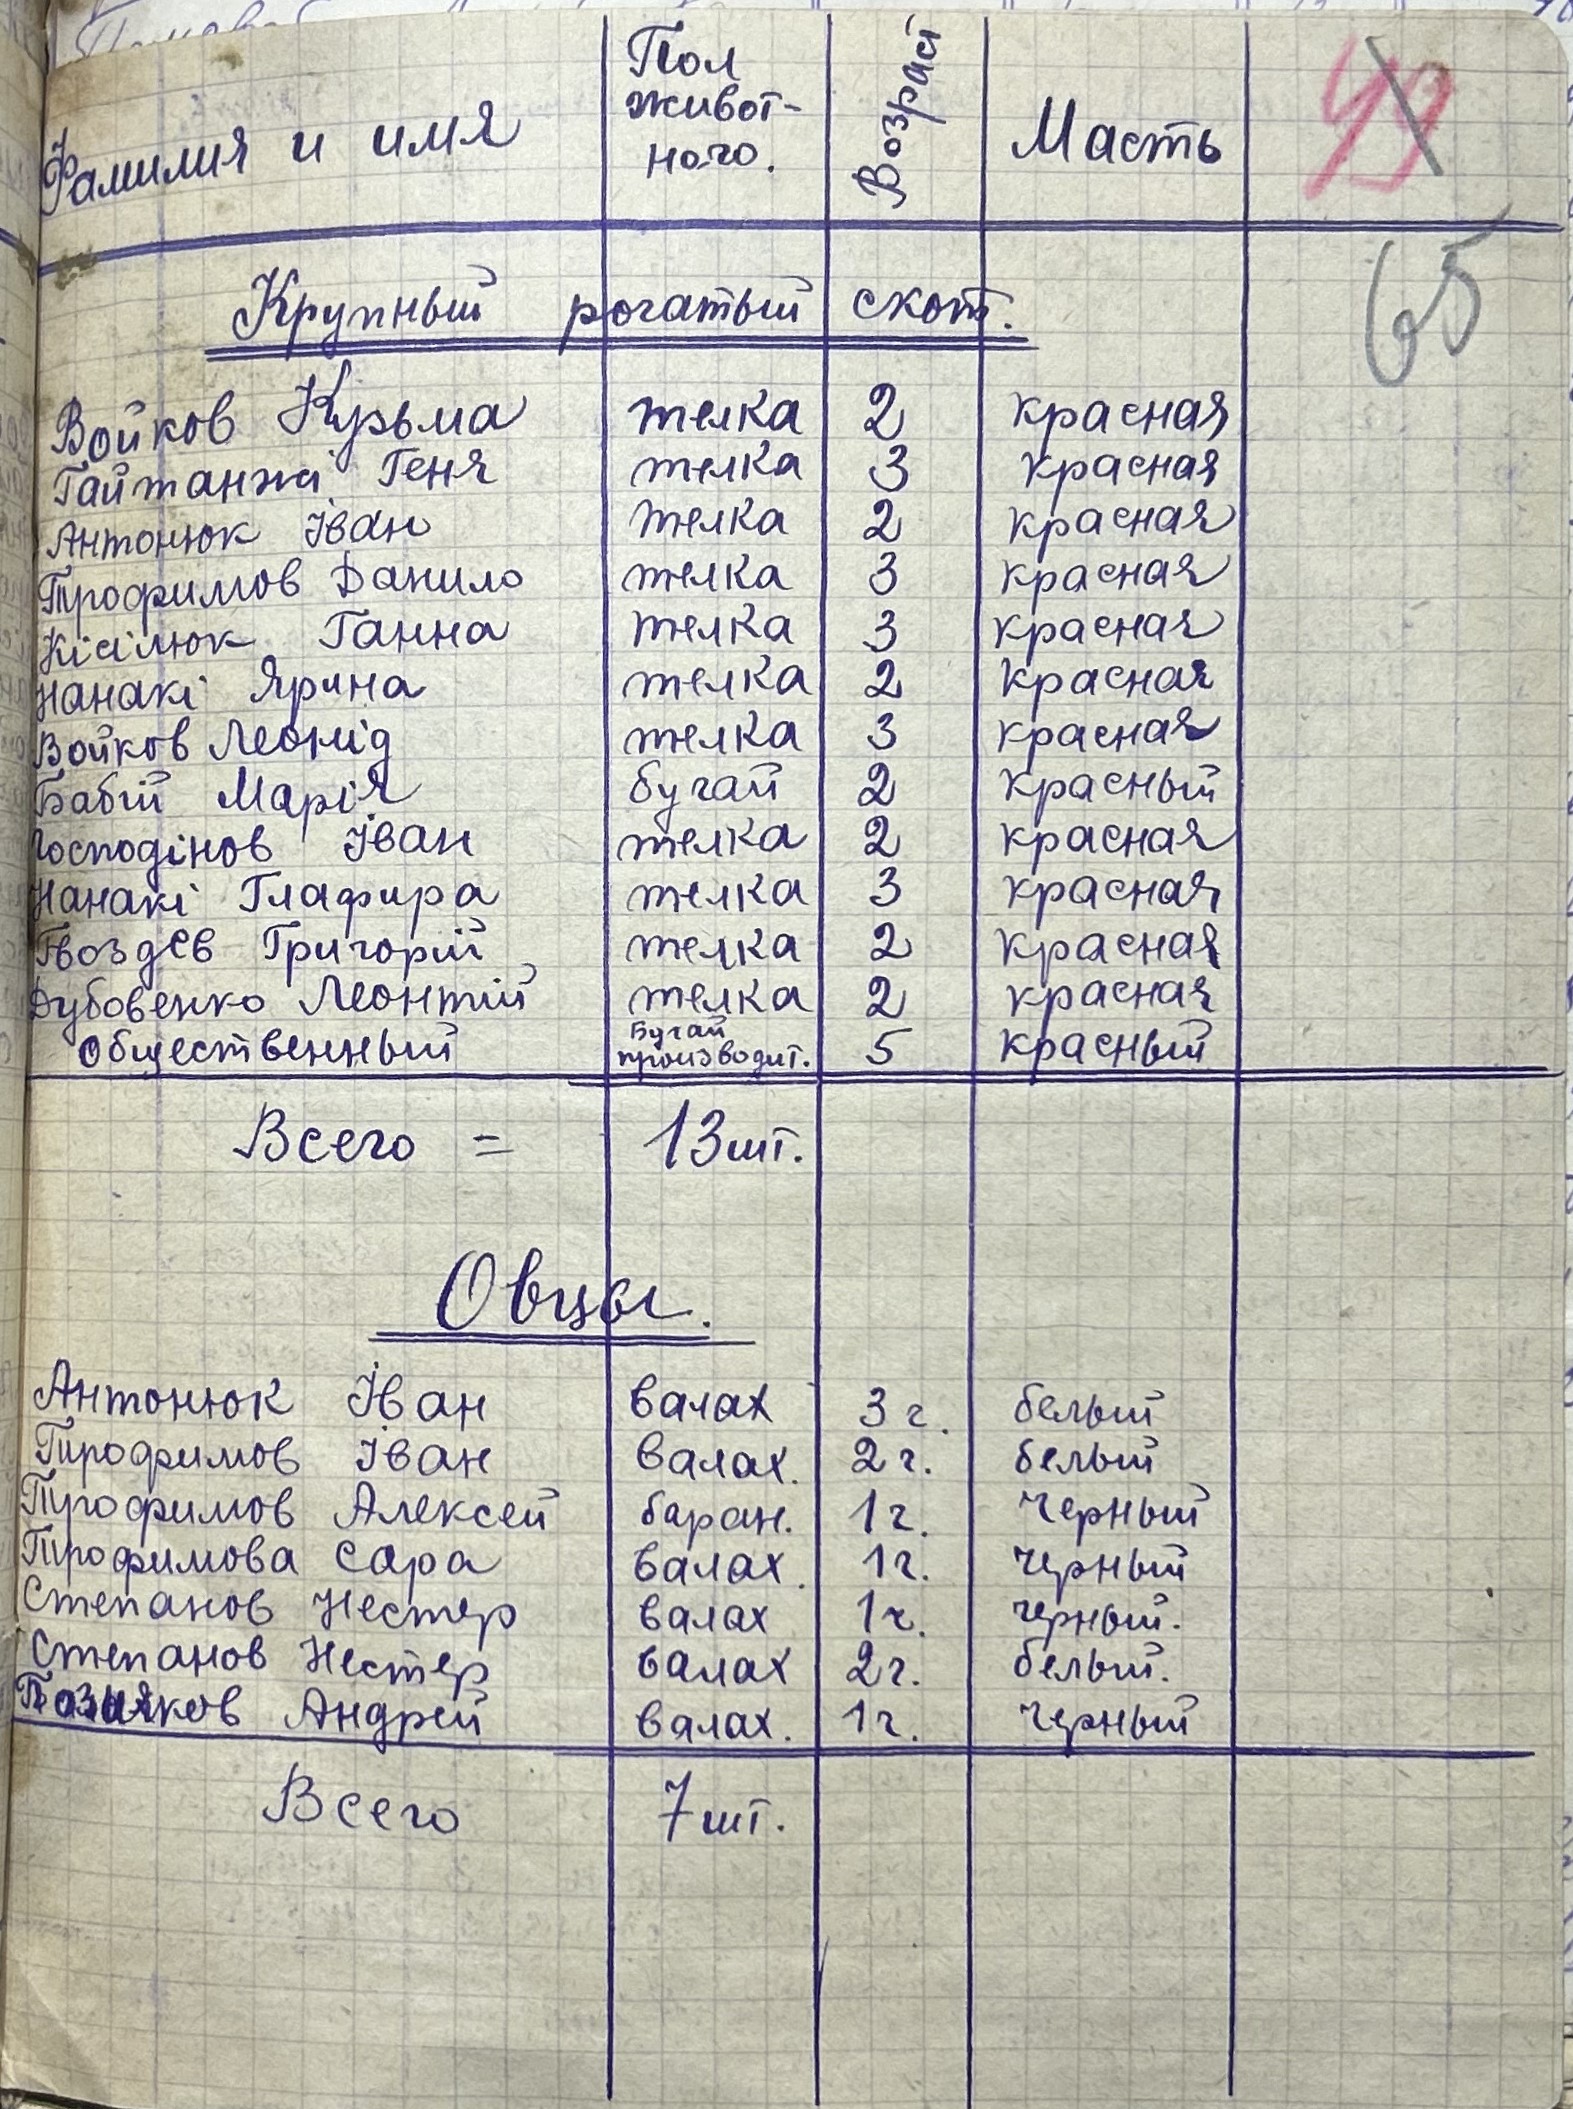 Фамилия и имя Пол живот- ного. Возраст Масть 49
65
Крупный рогатый скот.
Войков Кузьма телка 2 красная
Гайтанжі Геня телка 3 красная
Антонюк Іван телка 2 красная
Трофимов Данило телка 3 красная
Кісілюк Ганна телка 3 красная
Нанакі Ярина телка 2 красная
Войков Леонід телка 3 красная
Бабій Марія бугай 2 красный
Господінов Іван телка 2 красная
Нанакі Глафира телка 3 красная
Гвоздєв Григорій телка 2 красная
Дубовенко Леонтій телка 2 красная
Общественный Бугай производит. 5 красный
Всего = 13 шт.
Овцы.
Антонюк Іван валах 3 г. белый
Трофимов Іван валах. 2 г. белый
Трофимов Алексей баран. 1 г. черный
Трофимова Сара валах. 1 г. черный
Степанов Нестер валах 1 г. черный.
Степанов Нестер валах 2 г. белый.
Андрей валах. 1 г. черный
Всего 7 шт.